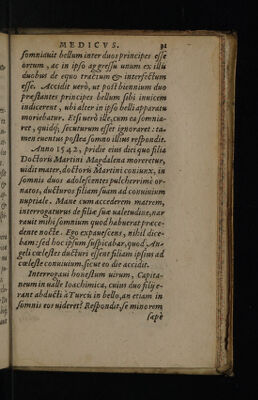 MEDICVS. 91
somniauit bellum inter duos principes esse
ortum, ac in ipso aggressu unum ex illis
duobus de equo tractum & interfectum
esse. Accidit uerò, ut post biennium duo
præstantes principes bellum sibi inuicem
indicerent, ubi alter in ipso belli apparatu
moriebatur. Etsi uerò ille, cum ea somnia-
ret, quidq; secuturum esset ignoraret: ta-
men euentus postea somno illius respondit.
Anno 1542, pridie eius diei quo filia
Doctoris Martini Magdalena moreretur,
uidit mater, doctoris Martini coniunx, in
somnis duos adolescentes pulcherrimè or-
natos, ducturos filiam suam ad conuiuium
nuptiale. Mane cum accederem matrem,
interrogaturus de filiæ suæ ualetudine, nar
rauit mihi somnium quod habuerat præce-
dente nocte. Ego expauescens, nihil dice-
bam: sed hoc ipsum suspicabar, quod An-
geli cœlestes ducturi essent filiam ipsius ad
cœleste conuiuium, sicut eo die accidit.
Interrogaui honestum uirum, Capita-
neum in ualle Ioachimica, cuius duo filij e-
rant abducti à Turcis in bello, an etiam in
somnis eos uideret? Respondit, se minorem
sæpè